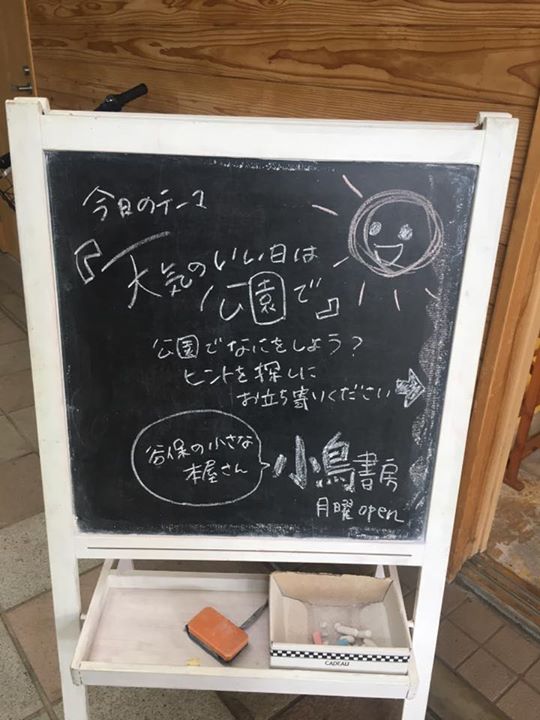 今日のテーマ
『天気のいい日は
公園で』
公園でなにをしよう?
ヒントを探しに
お立ち寄りください
谷保の小さな
本屋さん
小鳥書房
月曜open
CADEAU